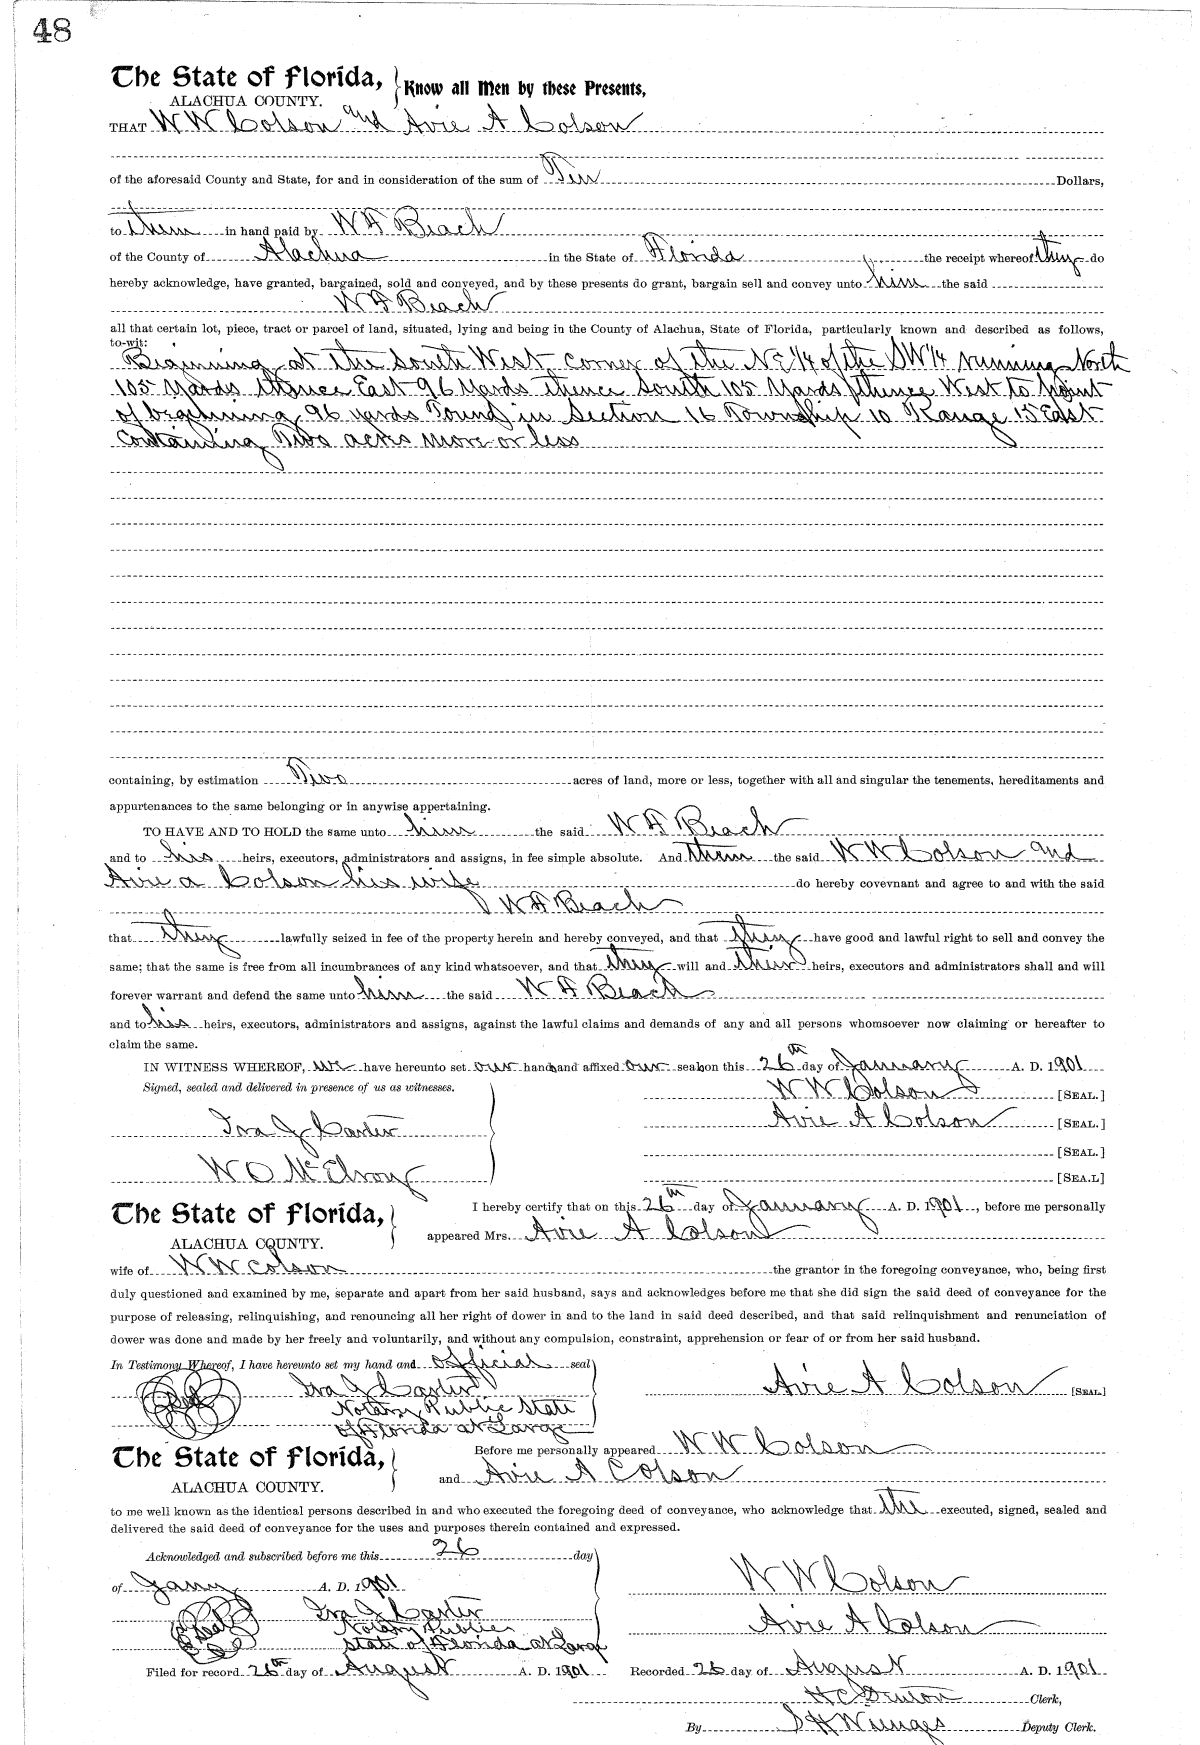 48
The State of Florida, } Know all Men by these Presents,
ALACHUA COUNTY.
THAT W W Colson and Avie A Colson
of the aforesaid County and State, for and in consideration of the sum of Ten Dollars,
to them in hand paid by W A Beach
of the County of Alachua in the State of Florida the receipt whereof they do
hereby acknowledge, have granted, bargained, sold and conveyed, and by these presents do grant, bargain sell and convey unto him the said
W A Beach
all that certain lot, piece, tract or parcel of land, situated, lying and being in the County of Alachua, State of Florida, particularly known and described as follows,
to-wit:
Beginning at the South West corner of the NE 1/4 of the SW 1/4 running North
105 Yards thence East 96 Yards thence South 105 Yards thence West to point
of beginning 96 yards Found in Section 16 Township 10 Range 15 East
containing Two acres more or less
containing, by estimation Two acres of land, more or less, together with all and singular the tenements, hereditaments and
appurtenances to the same belonging or in anywise appertaining.
TO HAVE AND TO HOLD the same unto him the said W A Beach
and to his heirs, executors, administrators and assigns, in fee simple absolute. And them the said W W Colson and
Avie A Colson his wife do hereby covevnant and agree to and with the said
W A Beach
that they lawfully seized in fee of the property herein and hereby conveyed, and that they have good and lawful right to sell and convey the
same; that the same is free from all incumbrances of any kind whatsoever, and that they will and their heirs, executors and administrators shall and will
forever warrant and defend the same unto him the said W A Beach
and to his heirs, executors, administrators and assigns, against the lawful claims and demands of any and all persons whomsoever now claiming or hereafter to
claim the same.
IN WITNESS WHEREOF, we have hereunto set our hands and affixed our seals on this 26th day of January A. D. 1901
Signed, sealed and delivered in presence of us as witnesses.
W W Colson [SEAL.]
Ira J Carter
Avie A Colson [SEAL.]
[SEAL.]
W O McElroy
[SEAL]
The State of Florida, } I hereby certify that on this 26th day of January A. D. 1901, before me personally
ALACHUA COUNTY. appeared Mrs. Avie A Colson
wife of W W Colson the grantor in the foregoing conveyance, who, being first
duly questioned and examined by me, separate and apart from her said husband, says and acknowledges before me that she did sign the said deed of conveyance for the
purpose of releasing, relinquishing, and renouncing all her right of dower in and to the land in said deed described, and that said relinquishment and renunciation of
dower was done and made by her freely and voluntarily, and without any compulsion, constraint, apprehension or fear of or from her said husband.
In Testimony Whereof, I have hereunto set my hand and official seal
Seal Ira J Carter Avie A Colson [SEAL]
Notary Public State
of Florida at Large
The State of Florida, } Before me personally appeared W W Colson
ALACHUA COUNTY. and Avie A Colson
to me well known as the identical persons described in and who executed the foregoing deed of conveyance, who acknowledge that the executed, signed, sealed and
delivered the said deed of conveyance for the uses and purposes therein contained and expressed.
Acknowledged and subscribed before me this 26 day
of Jany A. D. 1901
W W Colson
Seal Ira J Carter
Notary Public
State of Florida at Large
Avie A Colson
Filed for record 26th day of August A. D. 1901 Recorded 26 day of August A. D. 1901
H C Denton Clerk,
By S H Wienges Deputy Clerk.